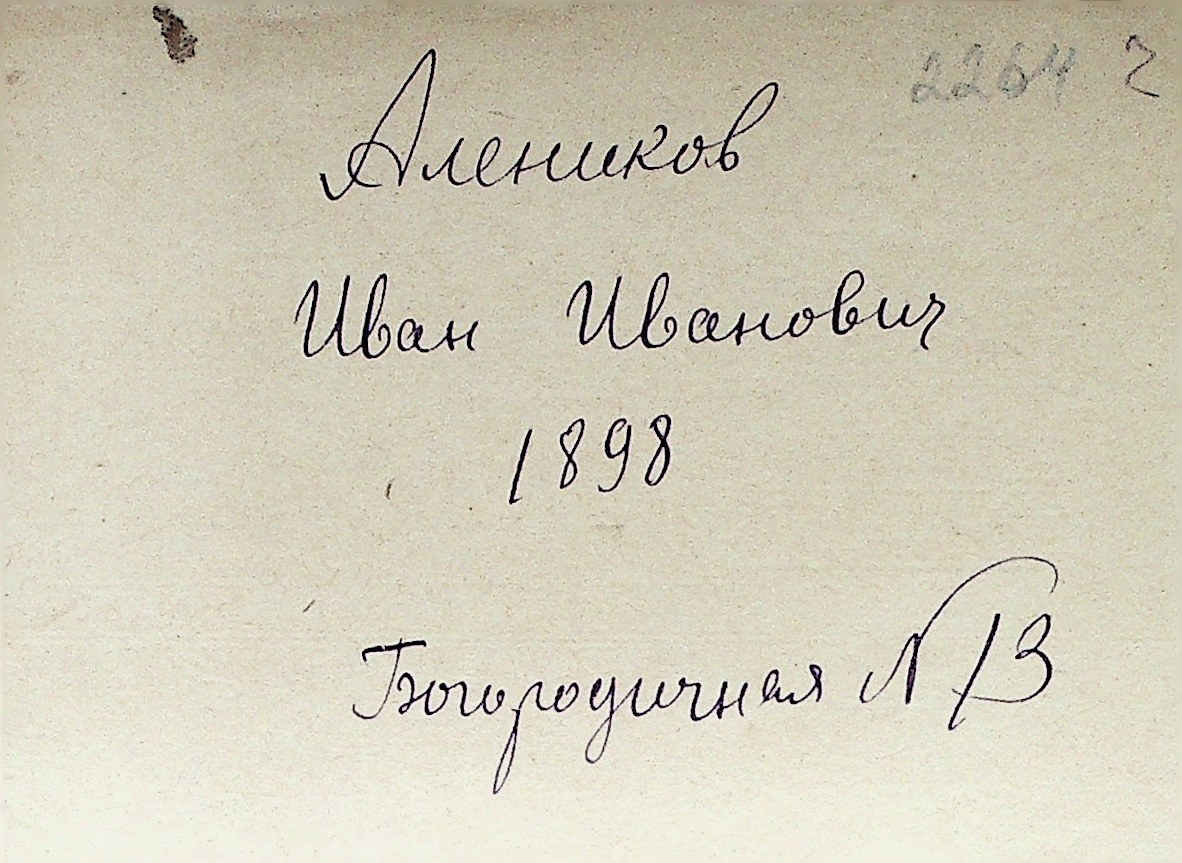 2264 2
Алеников
Иван Иванович
1898
Богородичная N 13